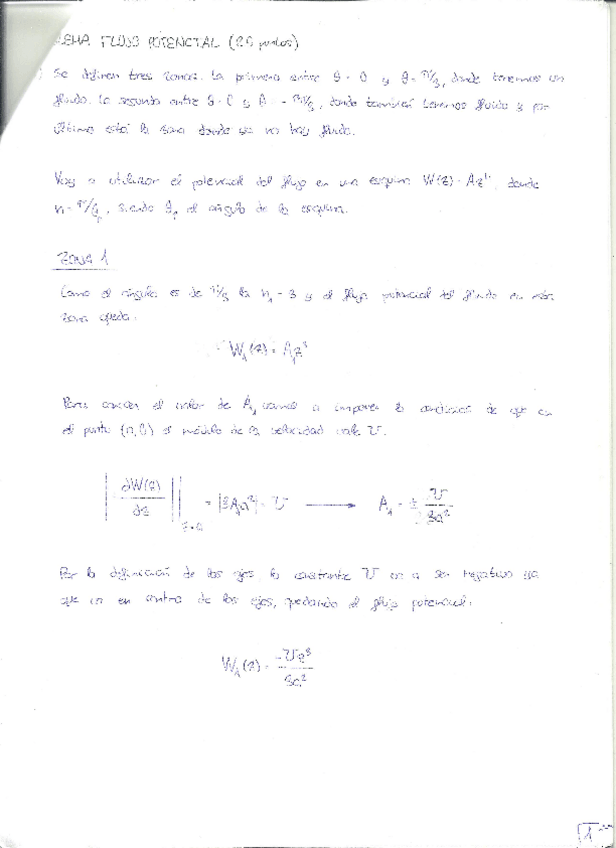 FLUJO POTENCIAL (20 puntos)
Se definen tres zonas. La primera entre θ = 0 y θ = π/3, donde tenemos un
fluido. La segunda entre θ = 0 y θ = - π/3, donde también tenemos fluido y por
último está la zona donde ya no hay fluido.
Voy a utilizar el potencial del flujo en una esquina W(z) = Azⁿ, donde
n = π/θ, siendo θ el ángulo de la esquina.
ZONA 1
Como el ángulo es de π/3 la n₁ = 3 y el flujo potencial del fluido en esta
zona queda:
W₁(z) = A₁z³
Para conocer el valor de A₁ vamos a imponer la condición de que en
el punto (a,0) el módulo de la velocidad vale U.
|dW(z)/dz| z=a = |3A₁a²| = U → A₁ = ± U/3a²
Por la definición de los ejes, la constante U va a ser negativa ya
que va en contra de los ejes, quedando el flujo potencial:
W₁(z) = -Uz³/3a²
1